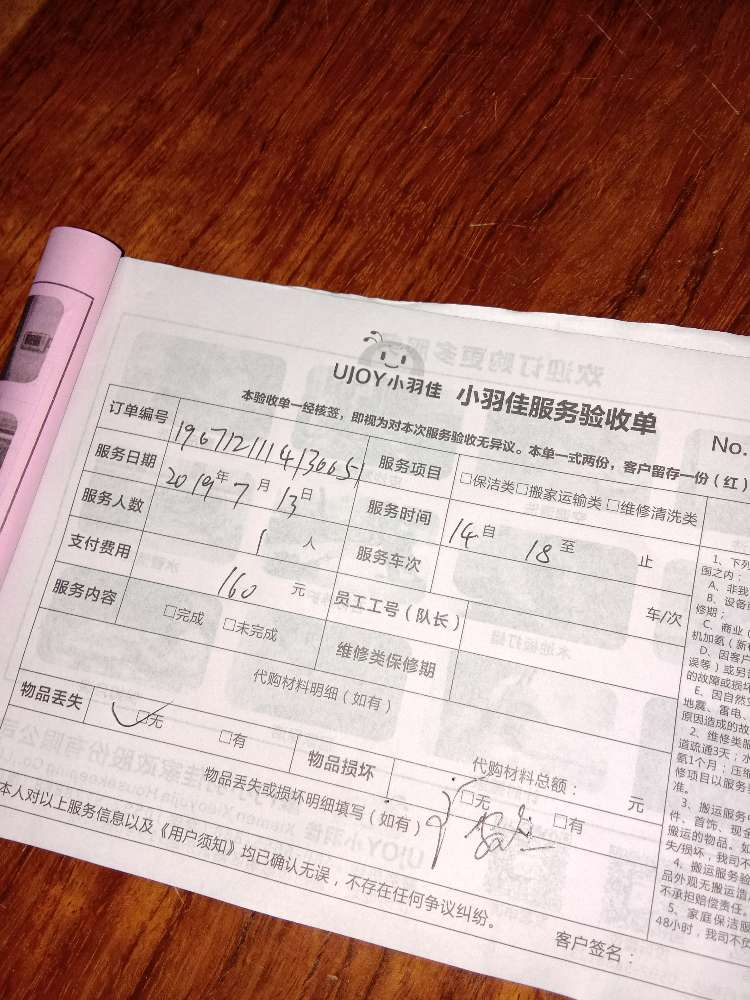 UJOY小羽佳 小羽佳服务验收单
No.
本验收单一经核签，即视为对本次服务验收无异议。本单一式两份，客户留存一份（红）
订单编号 服务项目 □保洁类□搬家运输类□维修清洗类
服务日期 2019年7月13日 服务时间 14自 18至 止
服务人数 1人 服务车次 车/次
支付费用 160元 员工工号（队长）
服务内容 □完成 □未完成 维修类保修期
代购材料明细（如有）
代购材料总额： 元
物品丢失 □无 □有 物品损坏 □无 □有
物品丢失或损坏明细填写（如有）
本人对以上服务信息以及《用户须知》均已确认无误，不存在任何争议纠纷。
客户签名：
1、下列
围之内：
A、非我
B、设备
修期；
C、商业（
机加氨（新
D、因客户
误等）或另
的故障或损坏
E、因自然
地震、雷电、
原因造成的故
2、维修类服
道疏通3天；水
氨1个月；压缩
修项目以服务
准。
3、搬运服务
件、首饰、现金
搬运的物品。如
失/损坏，我司不
4、搬运服务验
品外观无搬运造
不承担赔偿责任。
5、家庭保洁服
48小时，我司不负